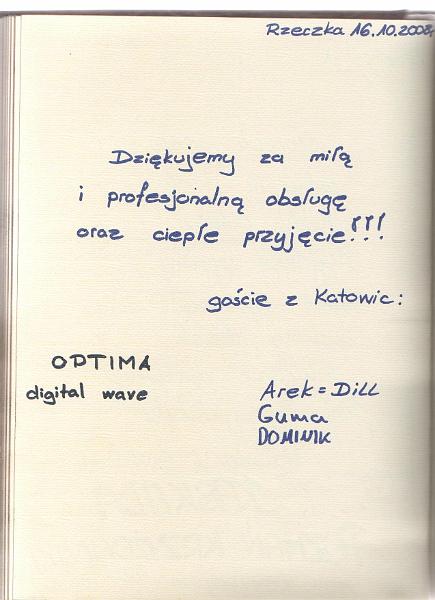 Rzeczka 16.10.2008r
Dziękujemy za miłą
i profesjonalną obsługę
oraz ciepłe przyjęcie!!!
goście z Katowic:
OPTIMA
digital wave
Arek = Dill
Guma
DOMINIK